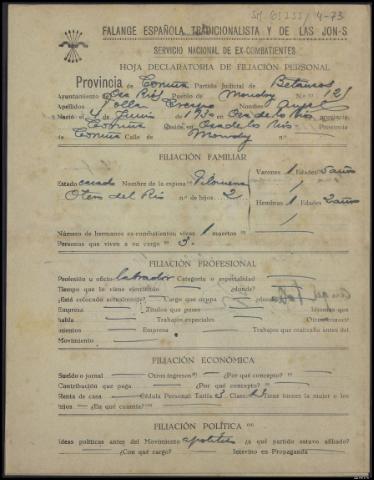 FALANGE ESPAÑOLA TRADICIONALISTA Y DE LAS JON-S
SERVICIO NACIONAL DE EX-COMBATIENTES
HOJA DECLARATORIA DE FILIACIÓN PERSONAL
Provincia de Coruña Partido Judicial de Betanzos
Ayuntamiento Oza Rios Pueblo de Mondoy N.º 121
Apellidos Crespo Nombre Angel
Nació el de Junio de 19 en Oza de los Rios, provincia
Coruña Reside en Oza de los Rios Provincia
Coruña Calle de Mondoy
FILIACIÓN FAMILIAR
Estado casado Nombre de la esposa Filomena Varones 1 Edades años
del Rio n.º de hijos 2 Hembras 1 Edades 2 años
Número de hermanos ex-combatientes vivos 1 muertos
Personas que viven a su cargo 3.
FILIACIÓN PROFESIONAL
Profesión u oficio Labrador Categoría o especialidad
Tiempo que la viene ejerciendo ¿donde?
¿Está colocado actualmente? Cargo que ocupa
Empresa Títulos que posee Idiomas que
habla Trabajos especiales
Empresa Trabajos que realizaba antes del
Movimiento
FILIACIÓN ECONÓMICA
Sueldo o jornal Otros ingresos ¿Por qué concepto?
Contribución que paga ¿Por qué concepto?
Renta de casa Cédula Personal: Tarifa 3 Clase 13 Tiene bienes la mujer o los
hijos ¿En qué cuantía?
FILIACIÓN POLÍTICA
Ideas políticas antes del Movimiento apolitico ¿a qué partido estuvo afiliado?
¿Con qué cargo? Intervino en Propaganda